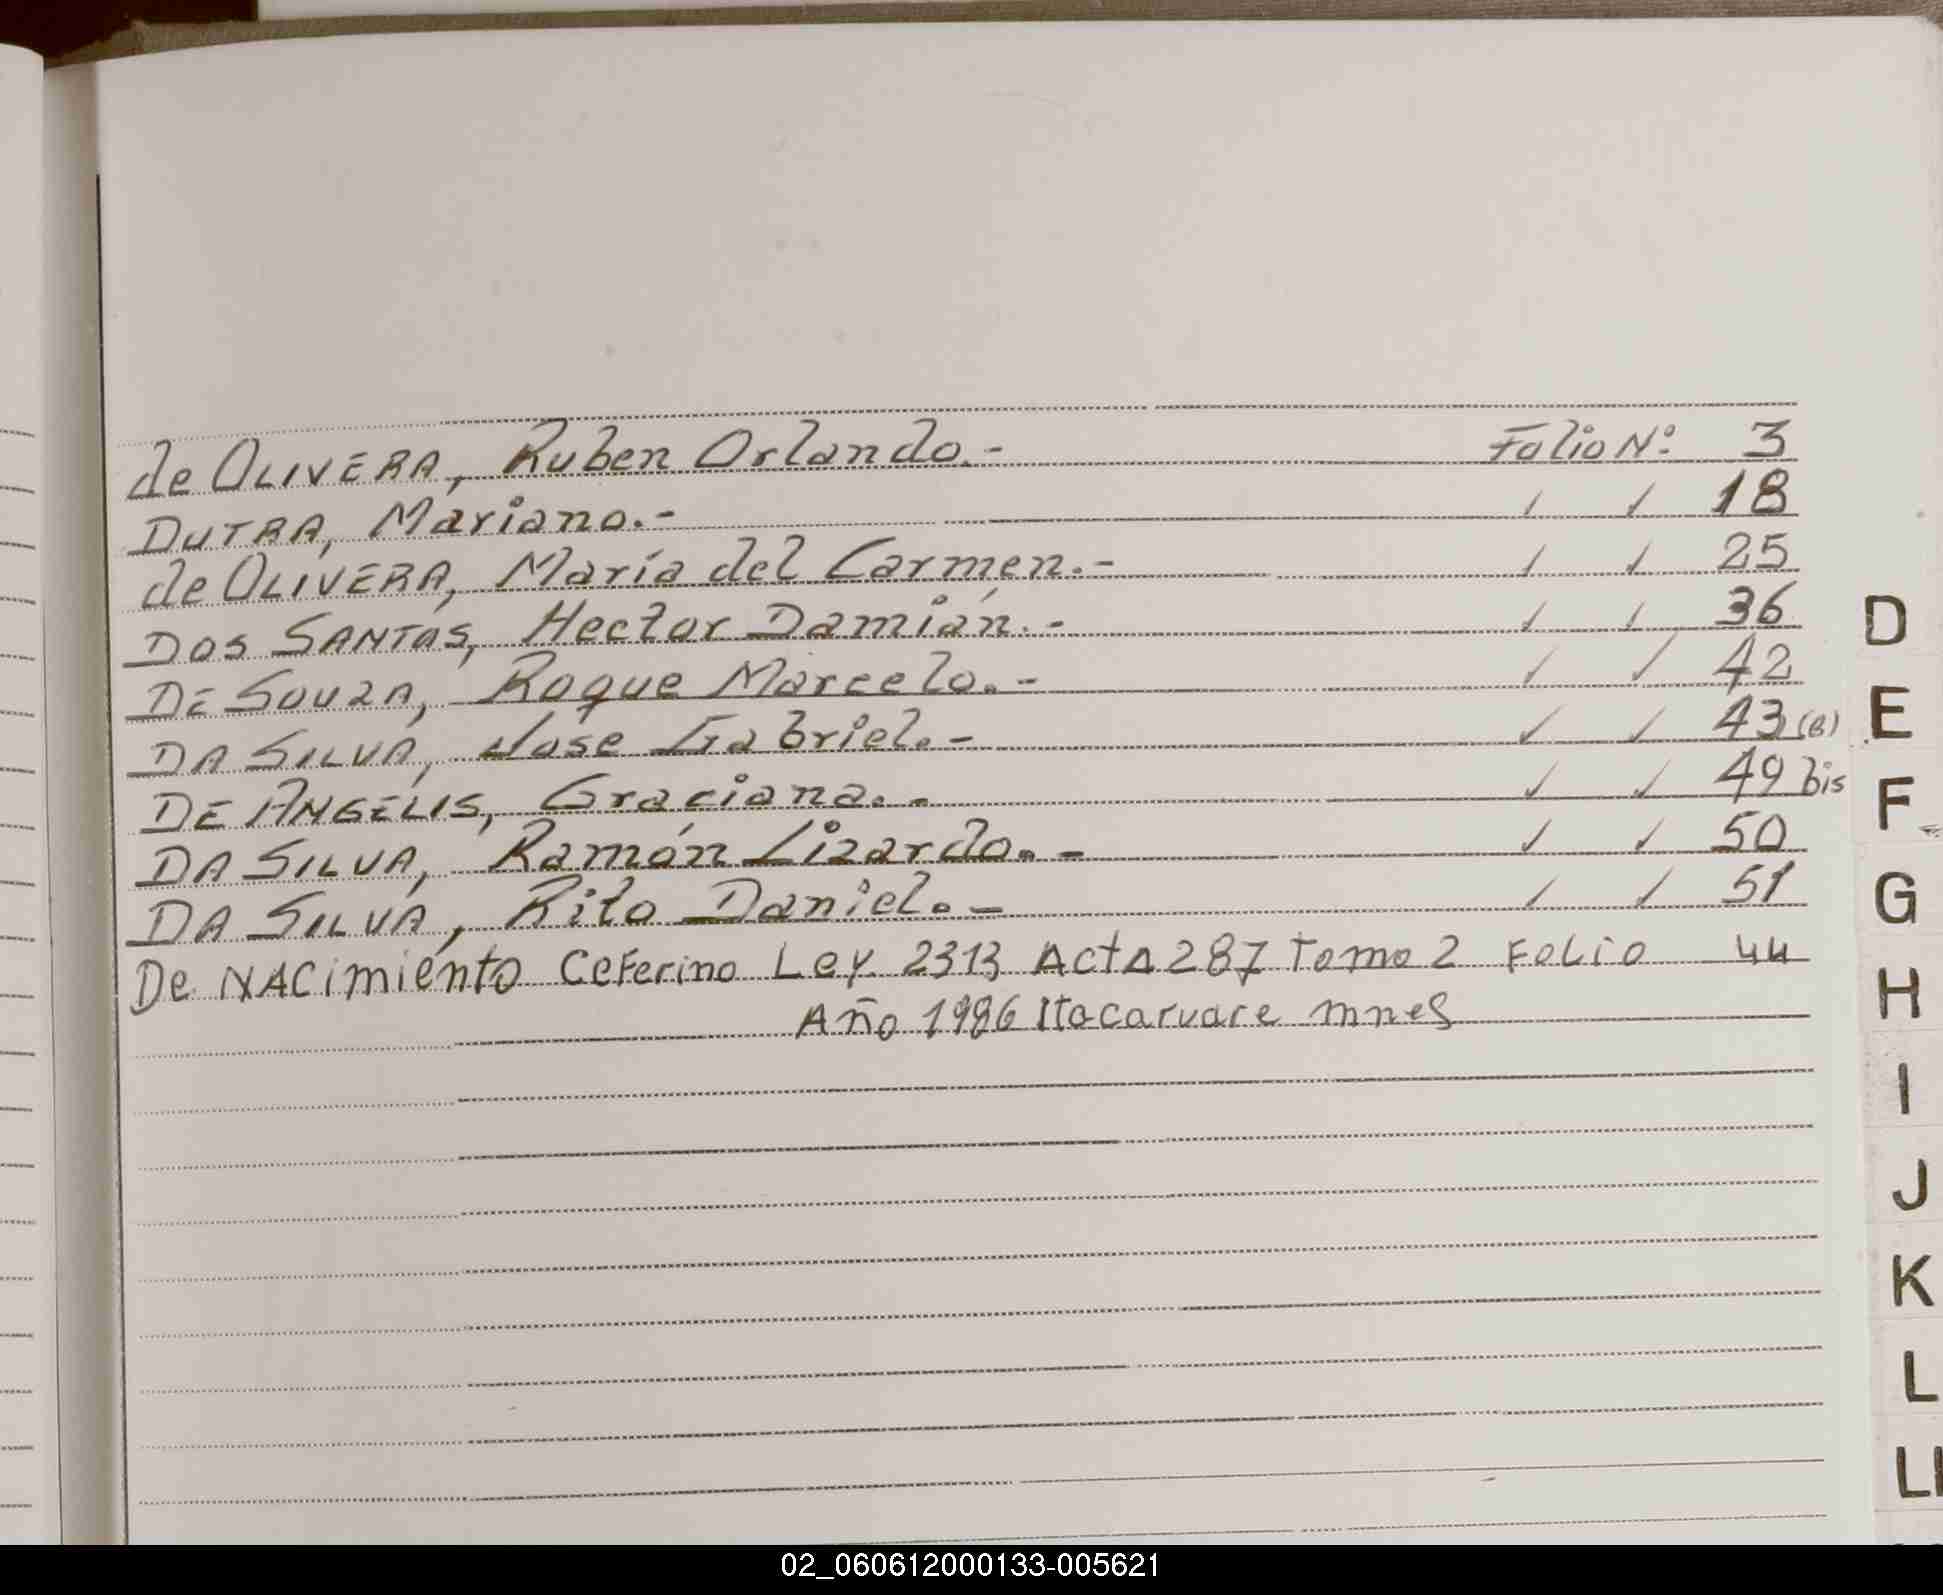 de OLIVERA, Ruben Orlando.- Folio Nº: 3
DUTRA, Mariano.- ✓ ✓ 18
de OLIVERA, María del Carmen.- ✓ ✓ 25
DOS SANTOS, Hector Damián.- ✓ ✓ 36
DE SOUZA, Roque Marcelo.- ✓ ✓ 42
DA SILVA, Jose Gabriel.- ✓ ✓ 43 (B)
DE ANGELIS, Graciana.- ✓ ✓ 49 bis
DA SILVA, Ramón Lizardo.- ✓ ✓ 50
DA SILVA, Rito Daniel.- ✓ ✓ 51
De NACimiento Ceferino Ley 2313 Acta 287 Tomo 2 Folio 44
Año 1986 Itacaruare mnes
D
E
F
G
H
I
J
K
L
Ll
02_060612000133-005621